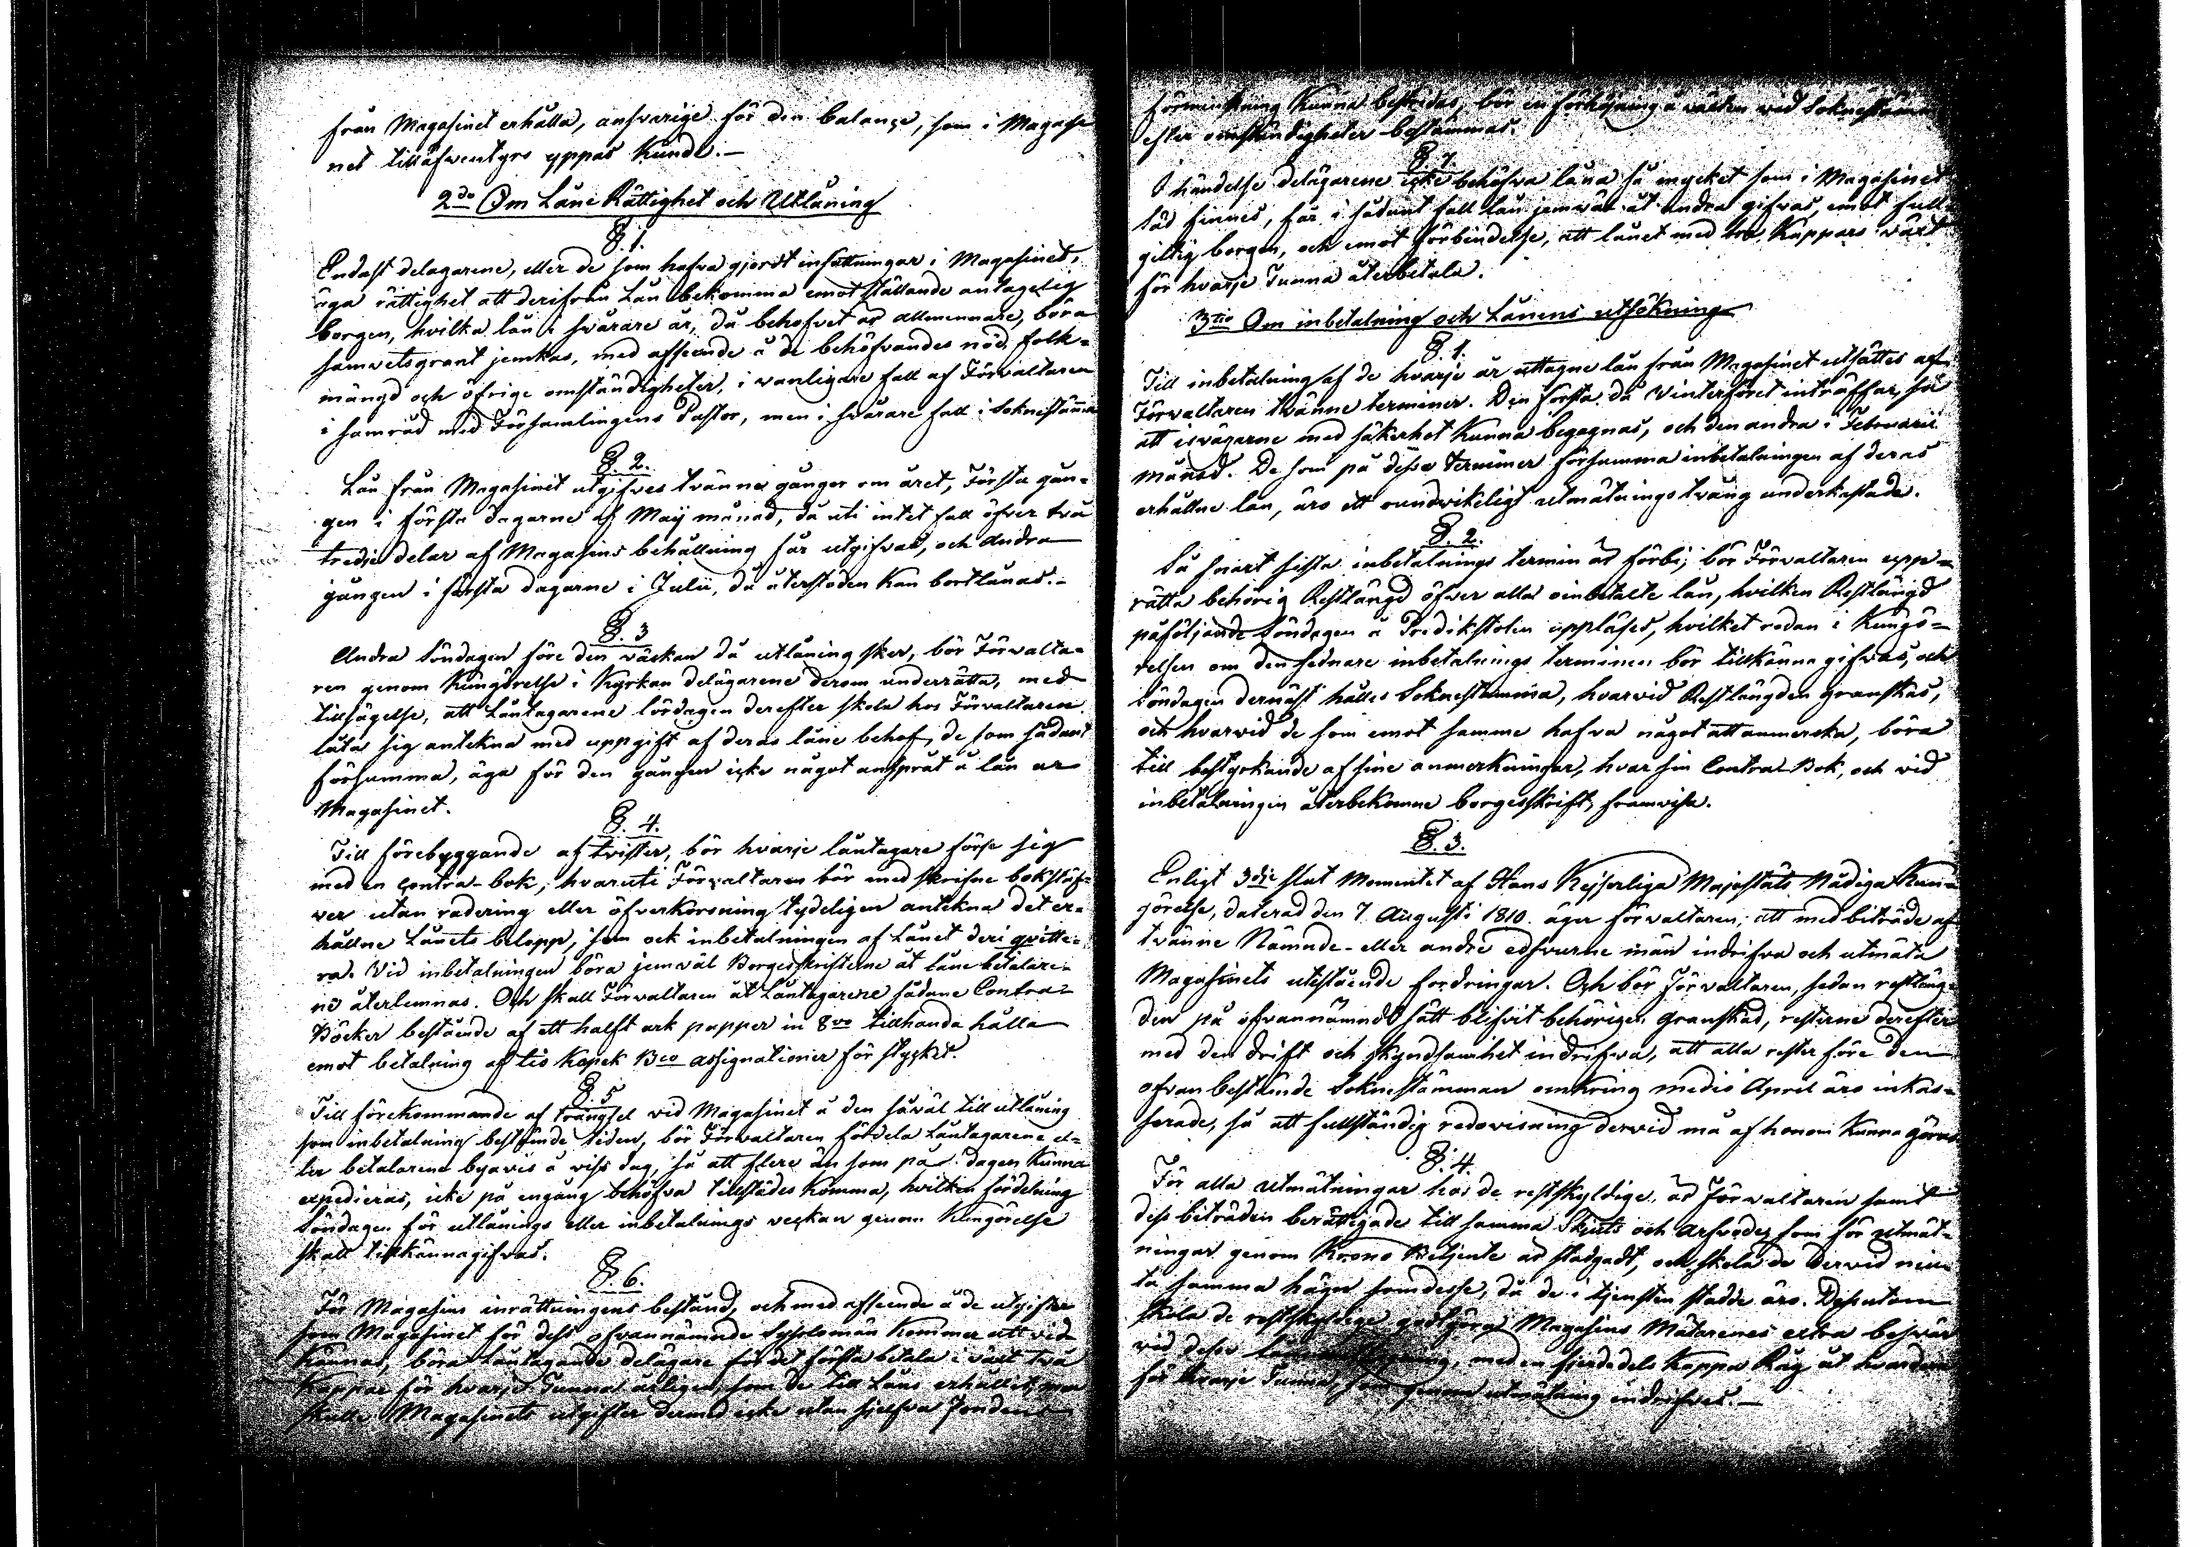 från Magasinet erhålla, ansvarige för den balançe, som i Magasi
net tilläfventyrs yppas kunde.—
2do Om Låne Rättighet och Utlåning
§. 1.
Endast delägarene, eller de som hafva gjordt insättningar i Magasinet,
äga rättighet att derifrån Lån bekomma emot ställande antagelig
borgen, hvilka lån i svårare år, då behofvet är allmennare, böra
samvetsgrant jemkas, med afseende å de behöfvandes nöd, folk=
mängd och öfrige omständigheter, i vanligare fall af Förvaltaren
i samråd med Församlingens Pastor, men i svårare fall i Soknestämma
§. 2.
Lån från Magasinet utgifves tvänne gånger om året, Första gån=
gen i första dagarne af Maij månad, då uti intet fall öfver två
tredje delar af Magasins behållning får utgifvas, och Andra
gången i första dagarne i Julii, då återstoden kan bortlånas.-
§. 3
Andra Söndagen före den veckan då utlåning sker, bör Förvalta=
ren genom Kungörelse i Kyrkan delägarene derom underrätta, med
tillsägelse, att Låntagarene lördagen derefter skola hos Förvaltaren
låta sig antekna med uppgift af deras låne behof, de som sådant
försumma, äga för den gången icke något anspråk å lån ur
Magasinet.
§. 4.
Till förebyggande af tvister, bör hvarje låntagare förse sig
med en Contra-bok, hvaruti Förvaltaren bör med skrifne bokstäf=
ver utan radering eller öfverkorsning tydeligen antekna det er=
hållne Lånets belopp, som ock inbetalningen af Lånet deri qvitte=
ra. Vid inbetalningen böra jemväl Borgesskrifterne åt låne betalare=
ne återlemnas. Och skall Förvaltaren åt Låntagarene sådane Contra=
Böcker bestående af ett halft ark papper in 8vo tillhanda hålla
emot betalning af tio Kopek Bco assignationer för stycket.
§. 5
Till förekommande af trängsel vid Magasinet å den såväl till utlåning
som inbetalning bestämde tiden, bör Förvaltaren fördela Låntagarene el=
ler betalarene byavis å viss dag, så att flere än som på dagen kunna
expedieras, icke på engång behöfva tillstädes komma, hvilken fördelning
Söndagen för utlånings eller inbetalnings veckan genom Kungörelse
skall tillkännagifvas.
§. 6.
För Magasins inrättningens bestånd, och med afseende å de utgifter
som Magasinet för dess ofvannämnde Sysslomän kommer att vid
kännas, böra Låntagande delägare för det första betala i växt två
Kappar för hvarje Tunna årligen, som de till Låns erhållit, men
skulle Magasinets utgifter dermed icke utan sjelfva fondens
förminskning kunna bestridas, bör en förhöjning å växten vid Soknestämma
efter omständigheter bestämmas.
§. 7.
I händelse delägarene icke behöfva låna så mycket som i Magasinet
säd finnes, får i sådant fall lån jemväl åt andra gifvas, emot full=
giltig borgen, och emot förbindelse, att lånet med tre Kappars växt
för hvarje Tunna återbetala.
3tio Om inbetalning och Lånens utsökning
§. 1.
Till inbetalning af de hvarje år uttagne lån från Magasinet utsättes af
Förvaltaren tvänne terminer. Den första då Vinterföret inträffar, så
att isvägarne med säkerhet kunna begagnas, och den andra i Februarii
månad. De som på desse terminer försumma inbetalningen af deras
erhållne lån, äro ett oundvikeligt utmätningstvång underkastade.
§. 2.
Så snart sista inbetalnings termin är förbi, bör Förvaltaren upp=
rätta behörig Restlängd öfver alla oinbetalte lån, hvilken Restlängd
påföljande Söndagen å Predikstolen uppläses, hvilket redan i Kungö=
relsen om den sednare inbetalnings terminen bör tillkännagifvas, och
söndagen dernäst hålles Soknestämma, hvarvid Restlängden granskas,
och hvarvid de som emot samme hafva något att anmerka, böra
till bestyrkande af sine anmerkningar, hvar sin Contra Bok, och vid
inbetalningen återbekomne borgesskrift, framvisa.
§. 3.
Enligt 3die slut Momentet af Hans Kejserliga Majestäts Nådiga Kun=
görelse, daterad den 7. Augusti 1810. äger förvaltaren, att med biträde af
tvänne Nämnde- eller andre edsvurne män indrifva och utmäta
Magasinets utestående fordringar. Och bör Förvaltaren, sedan restläng=
den på ofvannämndt sätt blifvit behörigen granskad, resterne derefter
med den drift och skyndsamhet indrifva, att alla rester före den
ofvan bestämde Soknestämman omkring medio April äro inkas=
serade, så att fullständig redovisning dervid må af honom kunna göras
§. 4.
För alla utmätningar hos de restskyldige, är Förvaltaren samt
dess biträden berättigade till samma Skjuts och Arfvode, som för utmät=
ningar genom Krono Betjente är stadgadt, och skola de dervid niu=
ta samma hägn som desse, då de i tjensten stadde äro. Dessutom
skola de restskyldige godtgöra Magasins Mätarenes extra besvär
vid desse, med en fjerdedels Kappa Råg åt hvardera
för hvarje Tunna, som genom utmätning indrifves.—